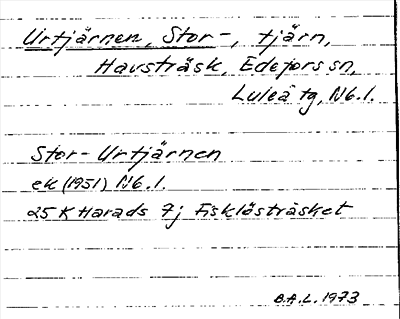 Urtjärnen, Stor-, tjärn,
Havsträsk, Edefors sn,
Luleå tg, Nb.l.
Stor-Urtjärnen
ek (1951) Nb.l.
25 K Harads 7j Fisklösträsket
B.A.L. 1973